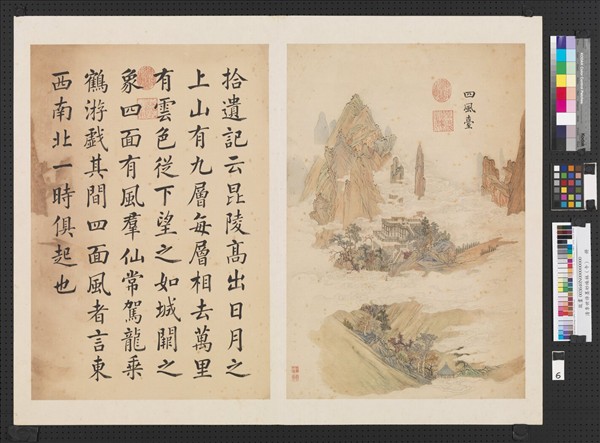 拾遺記云昆陵高出日月之
上山有九層每層相去萬里
有雲色從下望之如城闕之
象四面有風羣仙常駕龍乘
鶴游戲其間四面風者言東
西南北一時俱起也
四風臺
6